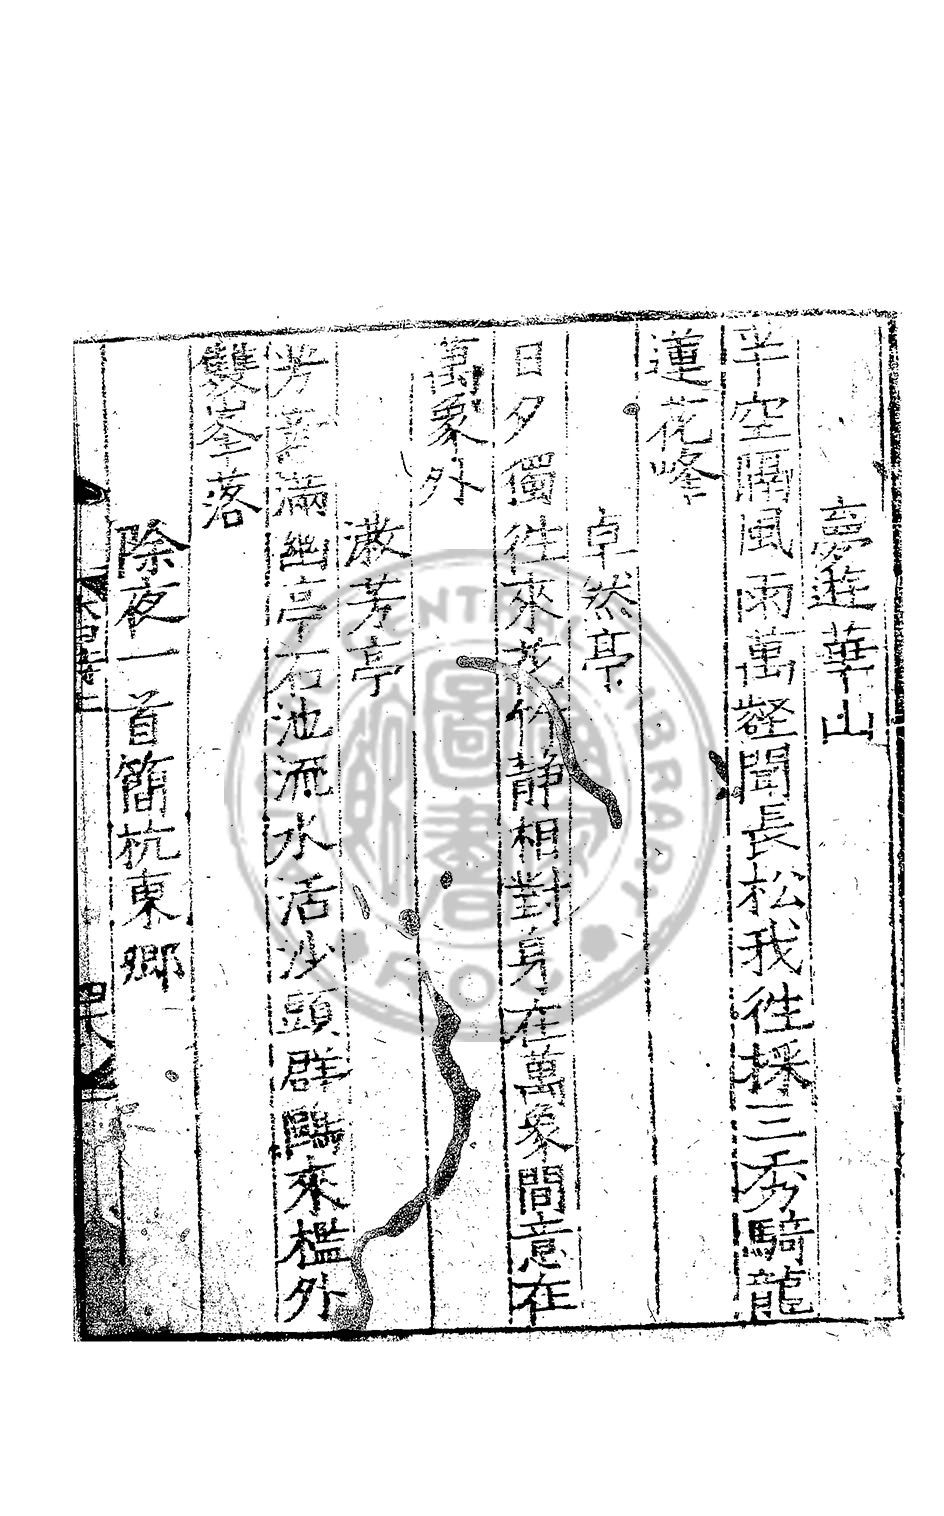 夢遊華山
半空隔風雨萬壑聞長松我徃採三秀騎龍
蓮花峰
卓然亭
日夕獨徃來花竹靜相對身在萬象間意在
萬象外
漱芳亭
芳 滿幽亭石池流水活沙頭群鷗來檻外
雙峯落
除夜一首簡杭東鄉
圖書
CENTRAL LIBRARY